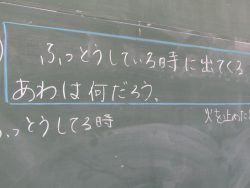 ふっとうしている時に出てくる
あわは何だろう。
っとうしてる時
火を止めた